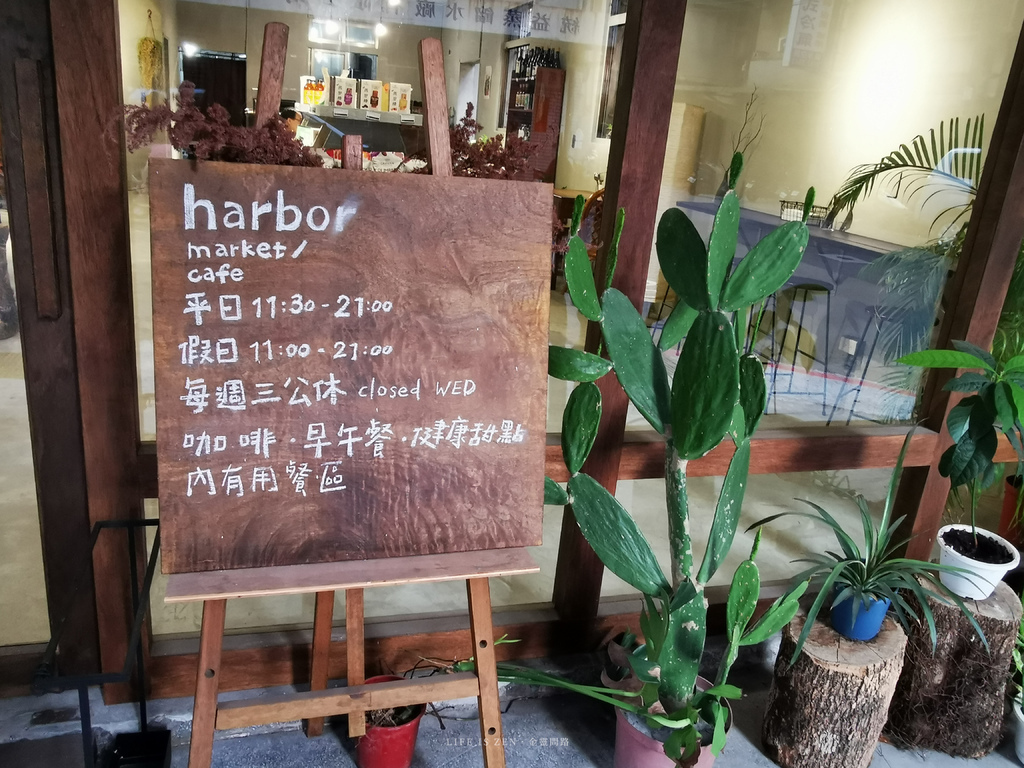 統益蒸餾水廠
harbor
market/
cafe
平日 11:30-21:00
假日 11:00-21:00
每週三公休 closed WED
咖啡·早午餐·健康甜點
內有用餐區
LIFE IS ZEN · 金靈問路